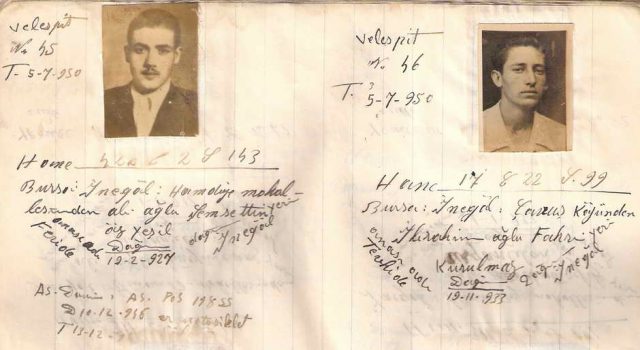 Velespit
No 45
T- 5-7-950
Hane 42a 6 2 S 143
Bursa: İnegöl: Hamdiye mahal-
lesinden ali oğlu Şemsettin yeri
öz yeşil doğ İnegöl
anası adı
Feride
Doğ
19-2-927
As. Pos 19855
D 10-12-956 er motosiklet
T 13-12-
Velespit
No 46
T. 5-7-950
Hane 17 8 22 S. 99
Bursa: İnegöl: Köyünden
İbrahim oğlu Fahri yeri
Kurulmaz doğ İnegöl
anası adı
Tevfide
Doğ
19-11-933